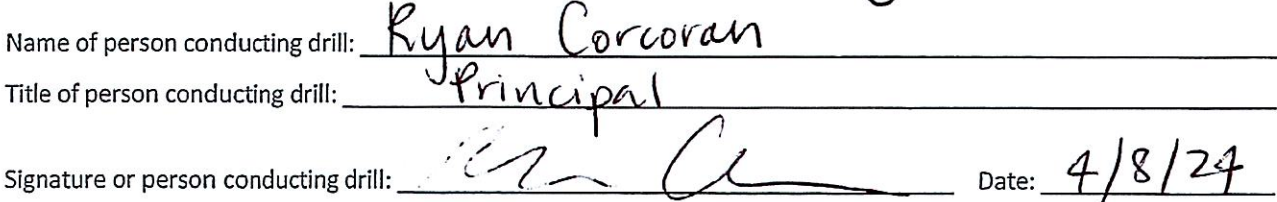 Name of person conducting drill: Ryan Corcoran
Title of person conducting drill: Principal
Signature or person conducting drill:
Date: 4/8/24